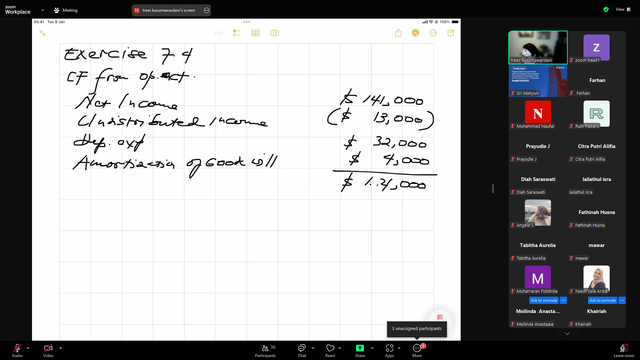 zoom
Workplace
Meeting
trees kusumawardani's screen
View
00.41 Tue 9 Jan
100%
Exercise 7-4
CF from op. act.
Net Income $ 141,000
Undistributed Income ($ 13,000)
Dep. exp $ 32,000
Amortization of Good will $ 4,000
$ 1..,000
trees kusumawardani
Z
zoom bae01
Sri Wahyuni
Farhan
Farhan
N
Muhammad Naufal
R
Putri Febiera
Prayudie J
Prayudie J
Citra Putri Alifia
Citra Putri Alifia
Diah Saraswati
Diah Saraswati
lailathul isra
lailathul isra
Angela S
Fathinah Husna
Tabitha Aurelia
Tabitha Aurelia
mawar
mawar
M
Muharraran Fiddinita
Niladri Sela Ardila
Ask to unmute
Ask to unmute
Meilinda Anasta...
Meilinda Anastasia
Khairiah
Khairiah
3 unassigned participants
Audio
Video
Participants
30
Chat
React
Share
Apps
More
Leave room